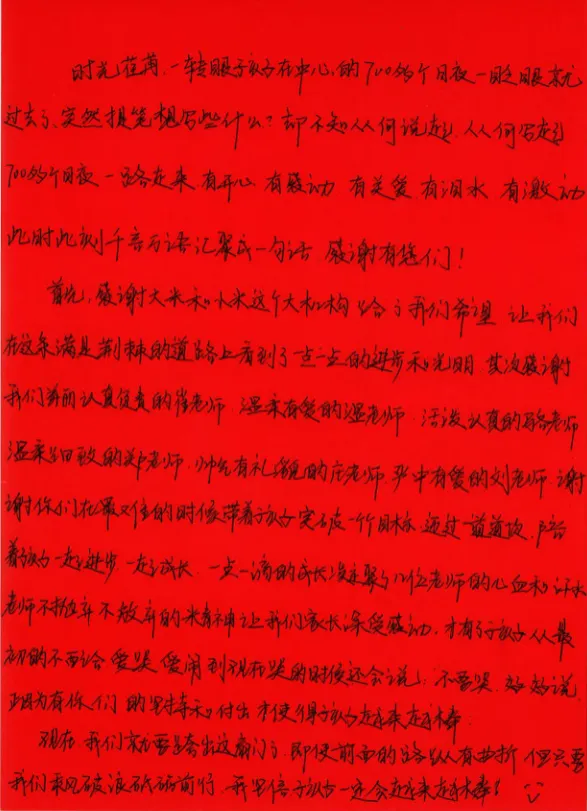 时光荏苒,一转眼孩子在中心的700多个日夜一眨眼就
过去了,突然提笔想写些什么?却不知从何说起,从何写起
700多个日夜一路走来,有开心 有感动 有关爱 有泪水 有激动
此时此刻千言万语汇聚成一句话 感谢有您们!
首先,感谢大米和小米这个大机构给了我们希望 让我们
在这条满是荆棘的道路上看到了一点一点的进步和光明 其次感谢
我们认真负责的崔老师,温柔有爱的温老师,活泼认真的骆老师
温柔细致的郑老师,帅气有礼貌的庄老师,严中有爱的刘老师,谢
谢你们在最佳的时候带着孩子突破一个目标,迈过一道道坎,陪
着孩子一起进步一起成长,一点一滴的成长凝聚了几位老师的心血和汗水
老师不抛弃不放弃的精神让我们家长深受感动,才有了孩子从最
初的不配合 爱哭 爱闹到现在哭的时候还会说:不要哭,好好说,
正因为有你们的坚持和付出才使得孩子越来越棒。
现在,我们就要跨出这扇门了,即使前面的路有曲折 但只要
我们乘风破浪砥砺前行,我坚信孩子一定会越来越棒!